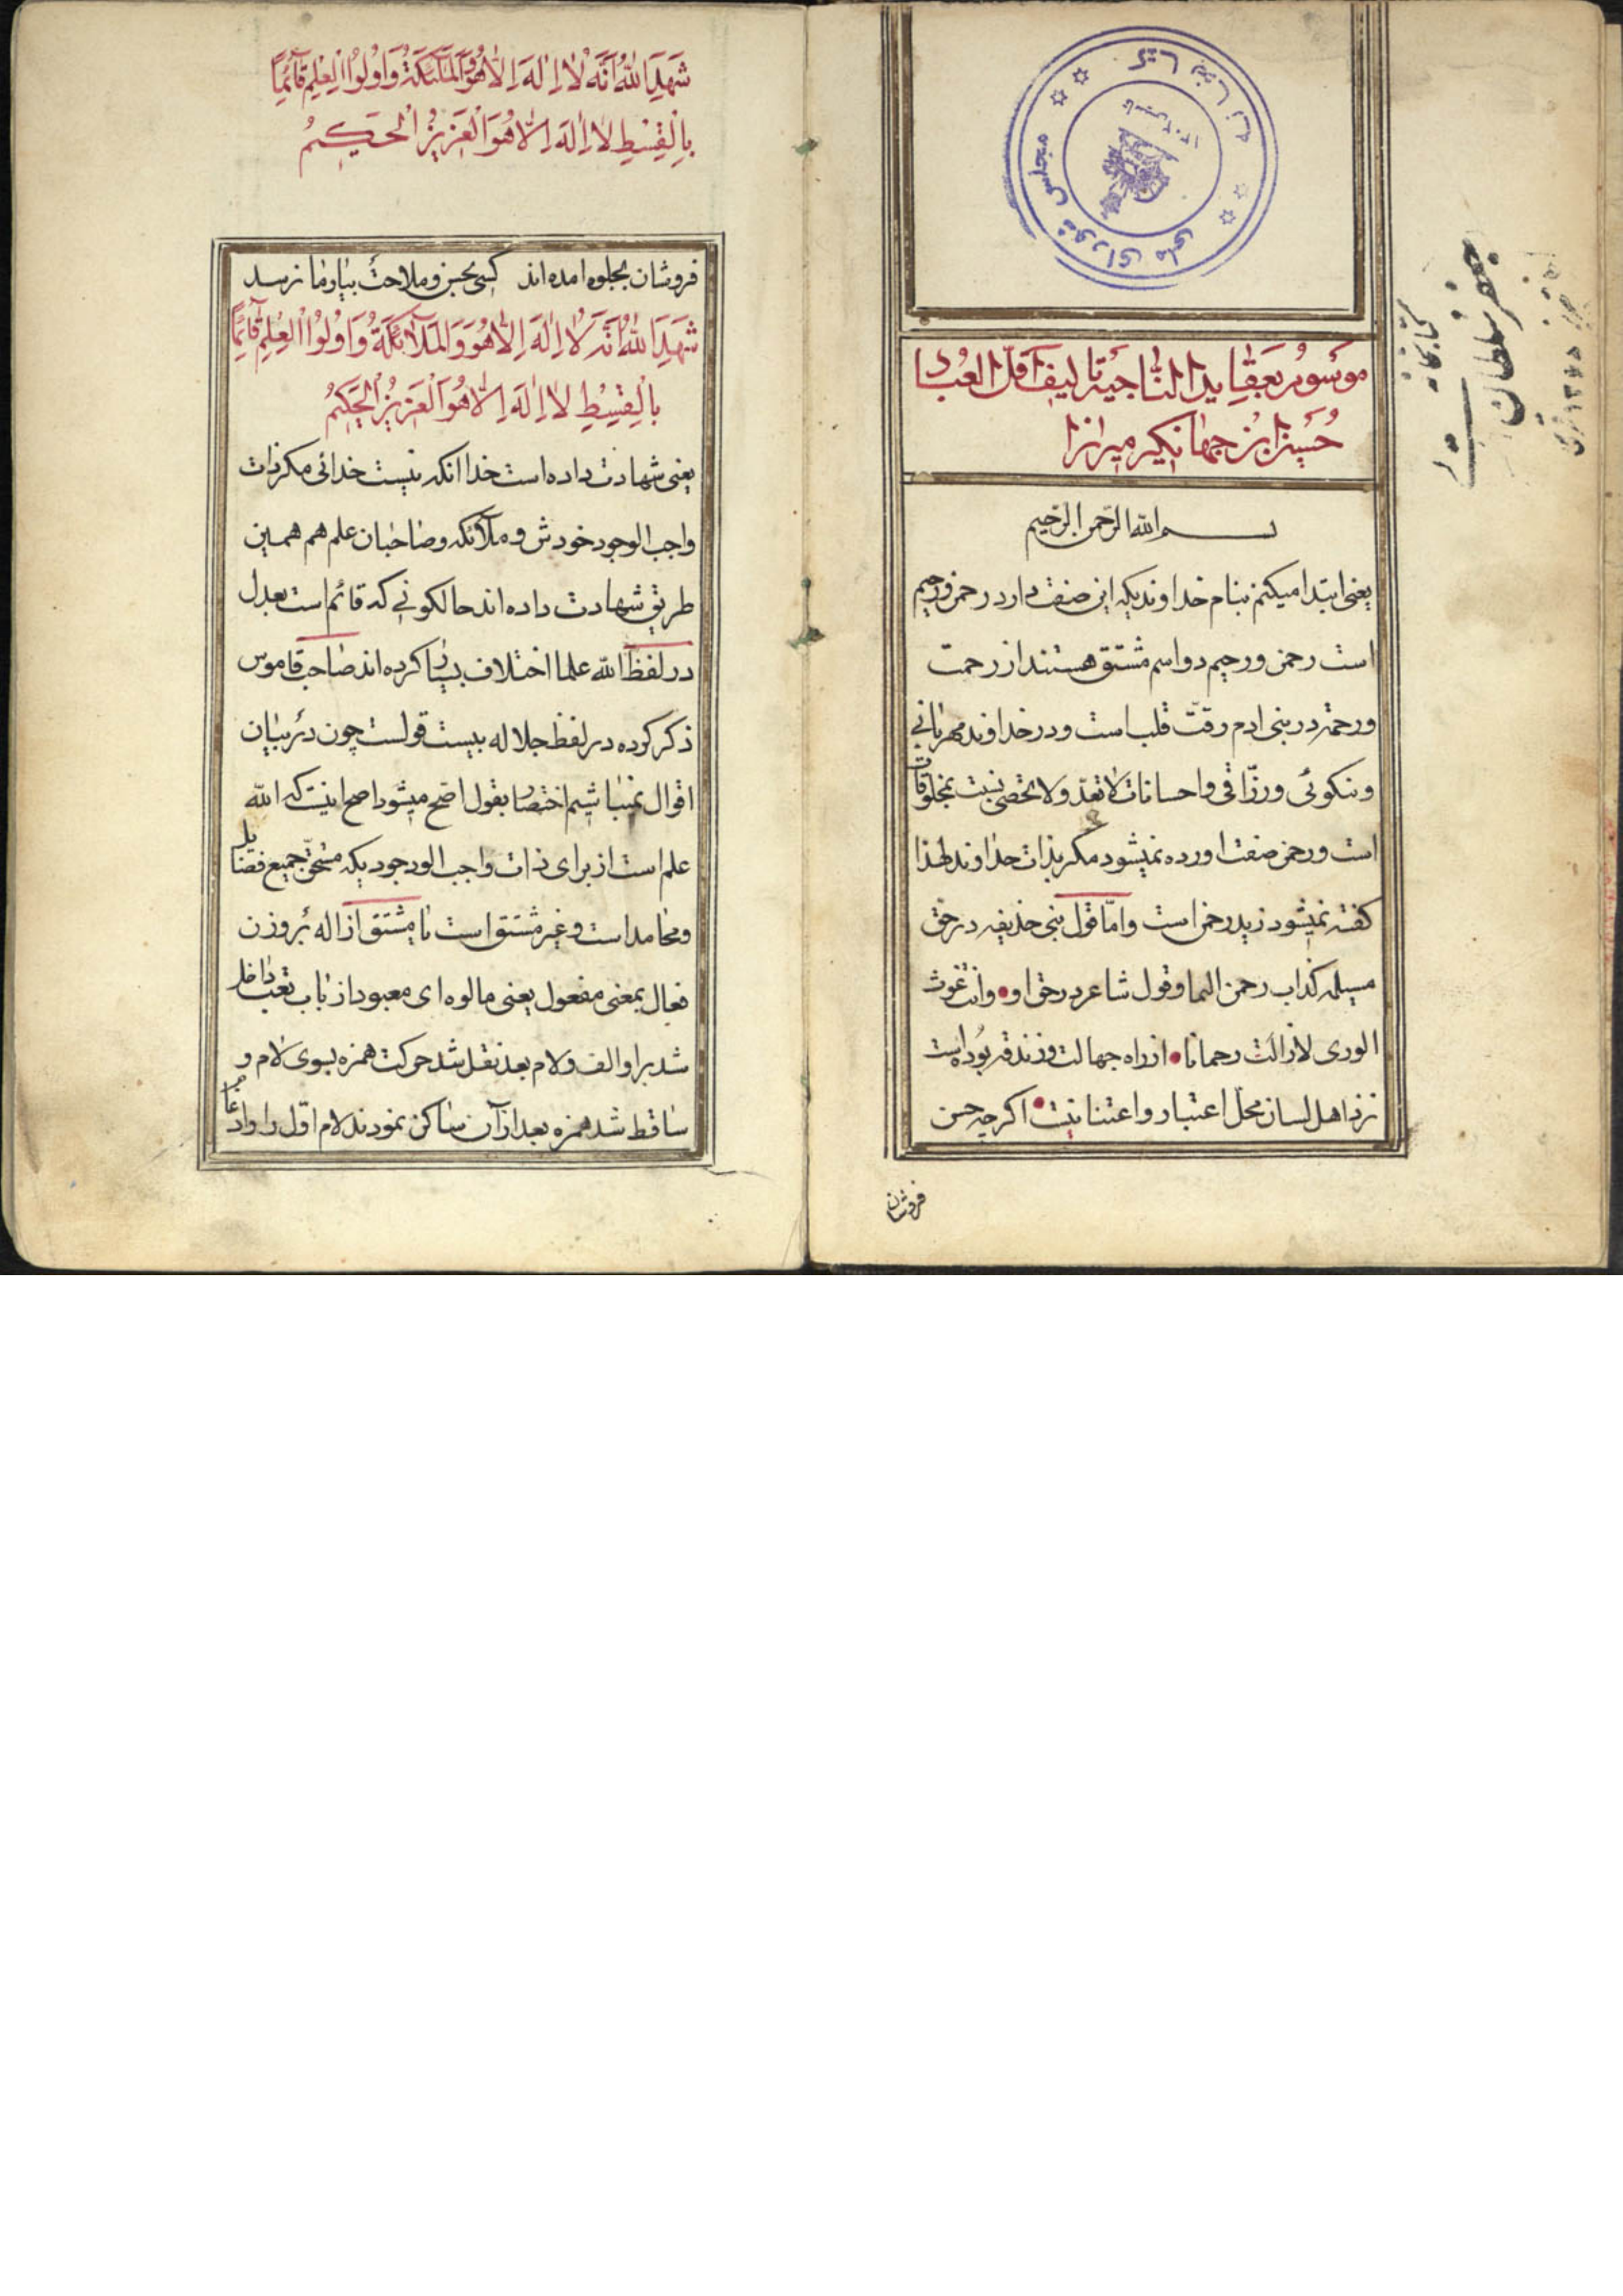 کتابخانه مجلس شورای ملی
کتابخانه
جعفر سلطان
موسوم بعقاید الناجیه تالیف اقل العباد
حسین ابن جهانکیر میرزا
بسم الله الرحمن الرحیم
یعنی ابتدا میکنم بنام خداوندیکه این صفت دارد رحمن و رحیم
است رحمن و رحیم دو اسم مشتق هستند از رحمت
و رحمة در بنی ادم رقّت قلب است و در خداوند مهربانی
و نیکوئی و رزّاقی و احسانات لا تعدّ و لا تحصی نسبت بمخلوقات
است و رحمن صفت اورده نمیشود مکر بذات خداوند لهذا
کفته نمیشود زید رحمن است و امّا قول بنی حذیفه در حق
مسیلمه کذاب رحمن الیما و قول شاعر در حق او وانت غوث
الوری لازالت رحمانا از راه جهالت و زندقه بوده است
نزد اهل لسان محلّ اعتبار و اعتنا نیست اکرچه حسن
فروشان
شَهِدَ اللهُ اَنَّهُ لا اِلهَ اِلّا هُوَ وَالمَلئِکَةُ وَاُولُوا العِلمِ قآئِماً
بِالْقِسْطِ لا اِلهَ اِلّا هُوَ الْعَزیزُ الْحَکیمُ
فروشان بجلوه امده اند کسی بحسن و ملاحت بیار ما نرسد
شَهِدَ اللهُ اَنَّهُ لا اِلهَ اِلّا هُوَ وَالمَلآئِکَةُ وَاُولُوا العِلمِ قآئِماً
بِالْقِسْطِ لا اِلهَ اِلّا هُوَ الْعَزیزُ الْحَکیمُ
یعنی شهادت داده است خدا انکه نیست خدائی مکر ذات
واجب الوجود خودش و ملآئکه و صاحبان علم هم همین
طریق شهادت داده اند حالکونی که قائم است بعدل
در لفظ الله علما اختلاف بسیار کرده اند صاحب قاموس
ذکر کرده در لفظ جلاله بیست قولست چون در بیان
اقوال نمیباشیم اختصارا بقول اصح میشود اصح اینست که الله
علم است از برای ذات واجب الوجودیکه مستحقّ جمیع فضایل
و محامد است و غیر مشتق است یا مشتق از اله بروزن
فعال بمعنی مفعول یعنی مالوه ای معبود از باب تعب داخل
شد براو الف و لام بعد نقل شد حرکت همزه بسوی لام و
ساقط شد همزه بعد از آن ساکن نمودند لام اوّل را و ادغام